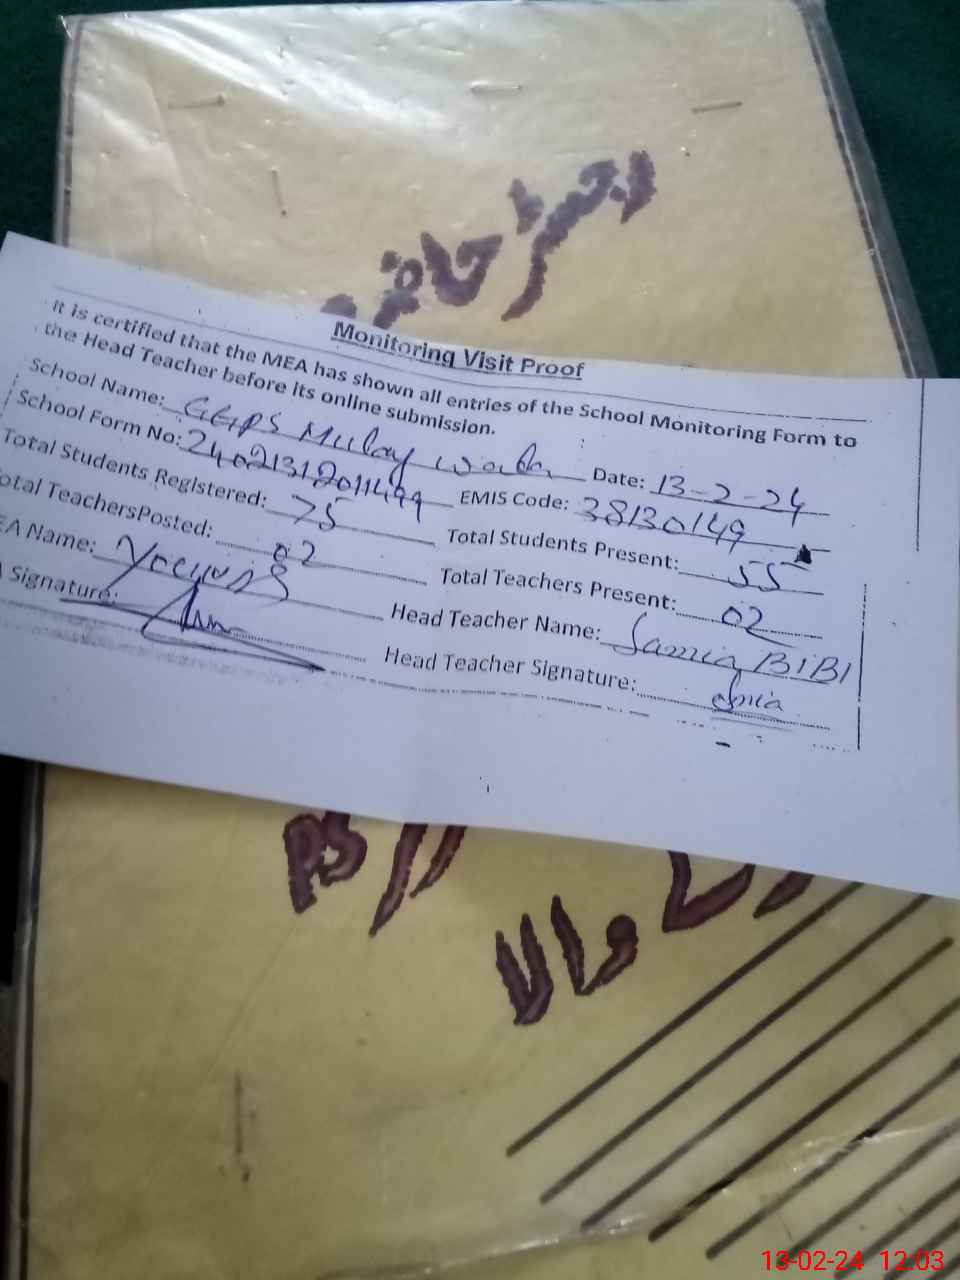 رجسٹر حاضری
Monitoring Visit Proof
It is certified that the MEA has shown all entries of the School Monitoring Form to
the Head Teacher before its online submission.
School Name: GGPS Mulay wala Date: 13-2-24
School Form No: 24021312011499 EMIS Code: 38130149
Total Students Registered: 75 Total Students Present: 55
otal TeachersPosted: 02 Total Teachers Present: 02
EA Name: Head Teacher Name: Samia BIBI
Signature: Head Teacher Signature: Samia
والا
13-02-24 12:03